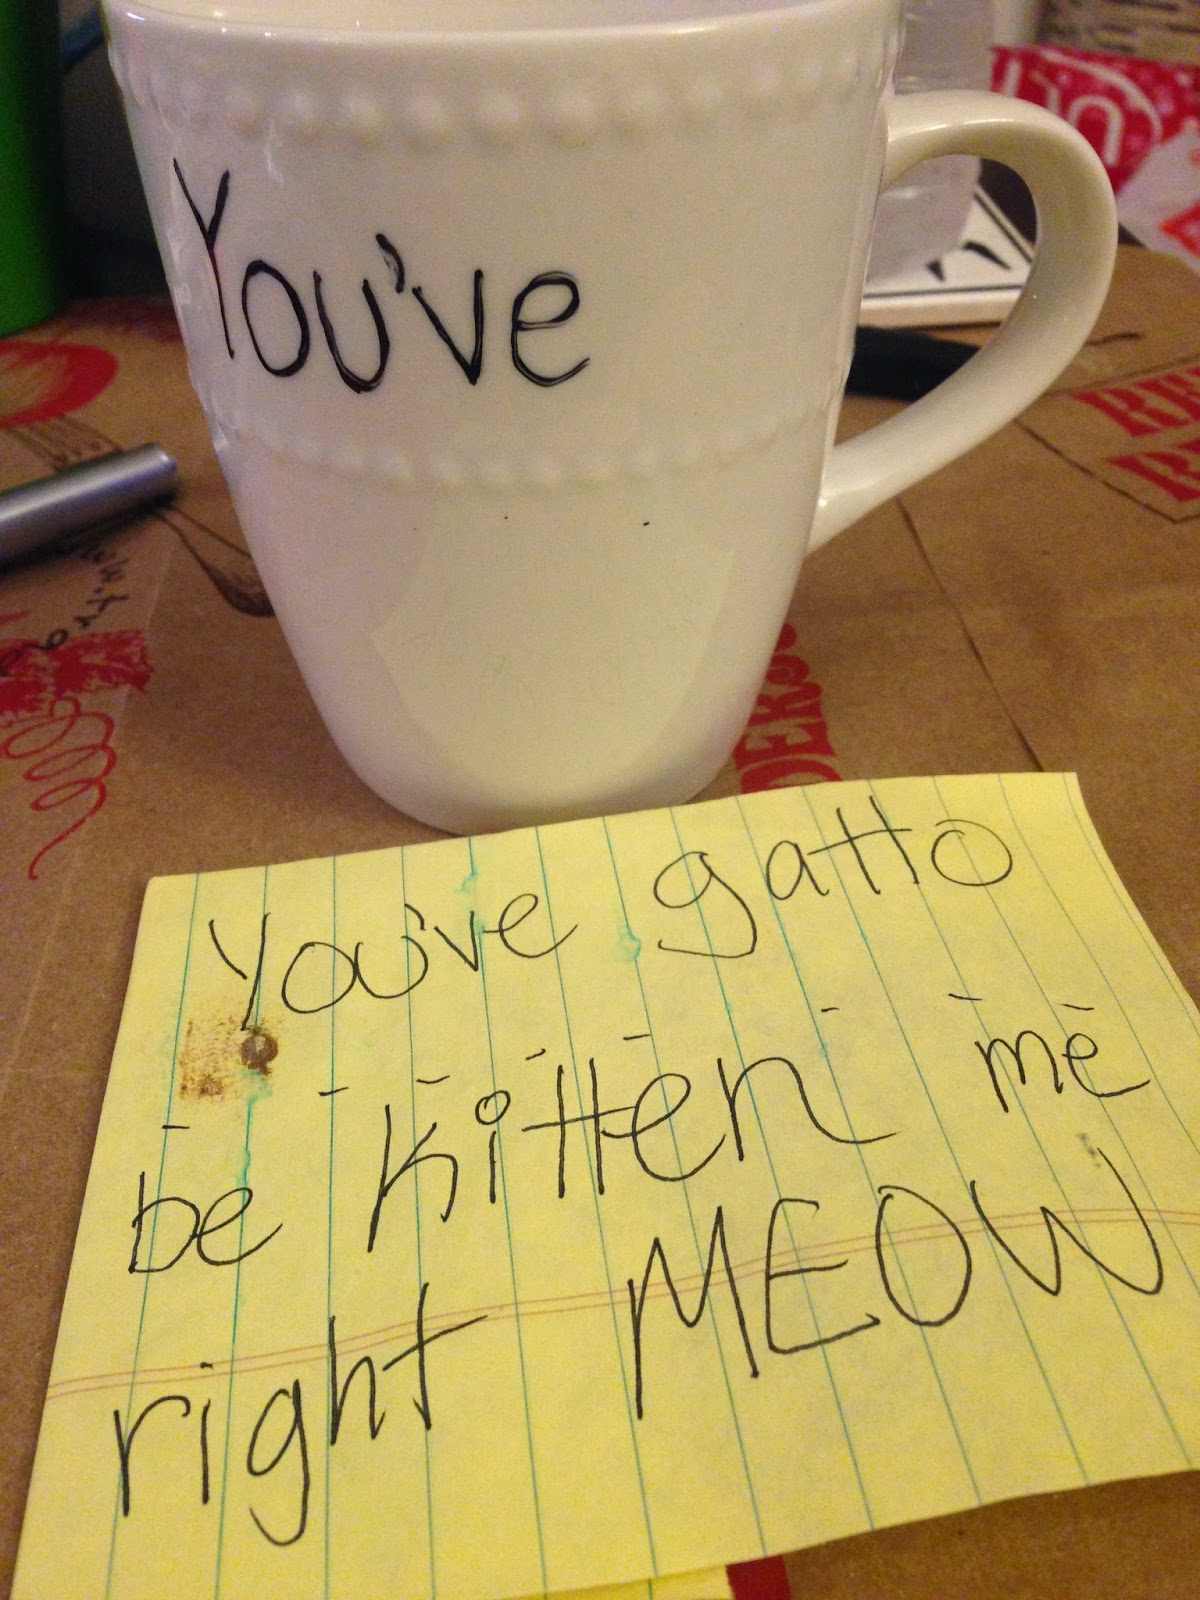 You've
You've gatto
be kitten me
right MEOW